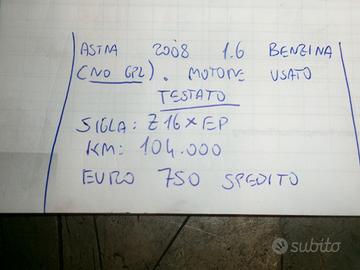 ASTRA 2008 1.6 BENZINA
(NO GPL). MOTORE USATO
TESTATO
SIGLA: Z16XEP
KM: 104.000
EURO 750 SPEDITO
subito